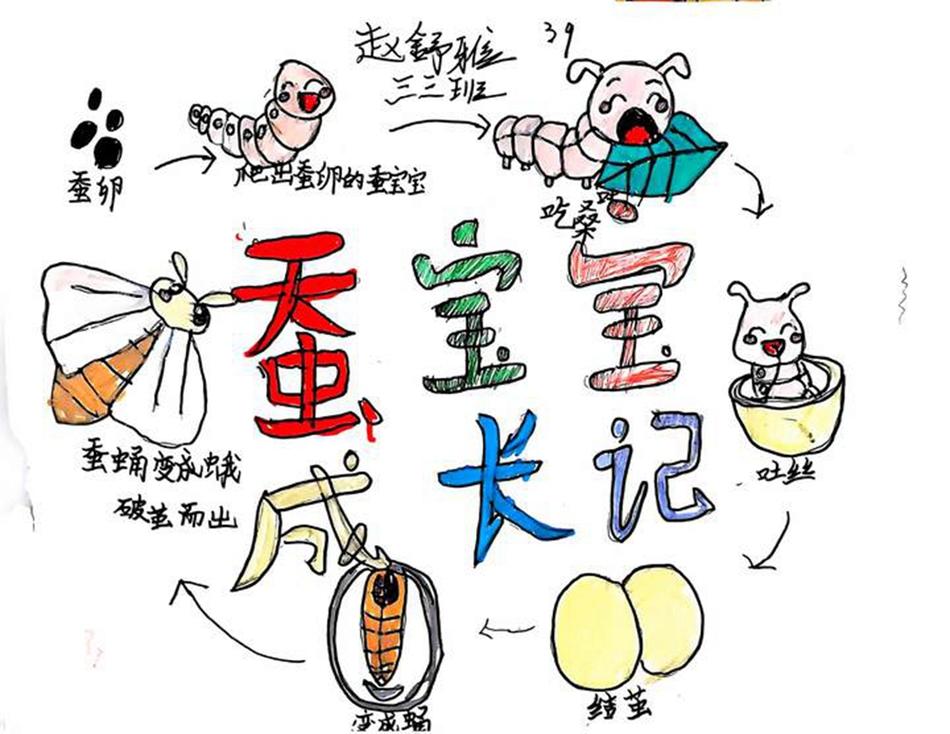 赵舒雅 39
三三班
蚕卵
爬出蚕卵的蚕宝宝
吃桑叶
蚕宝宝
成长记
吐丝
结茧
变成蛹
蚕蛹变成蛾
破茧而出